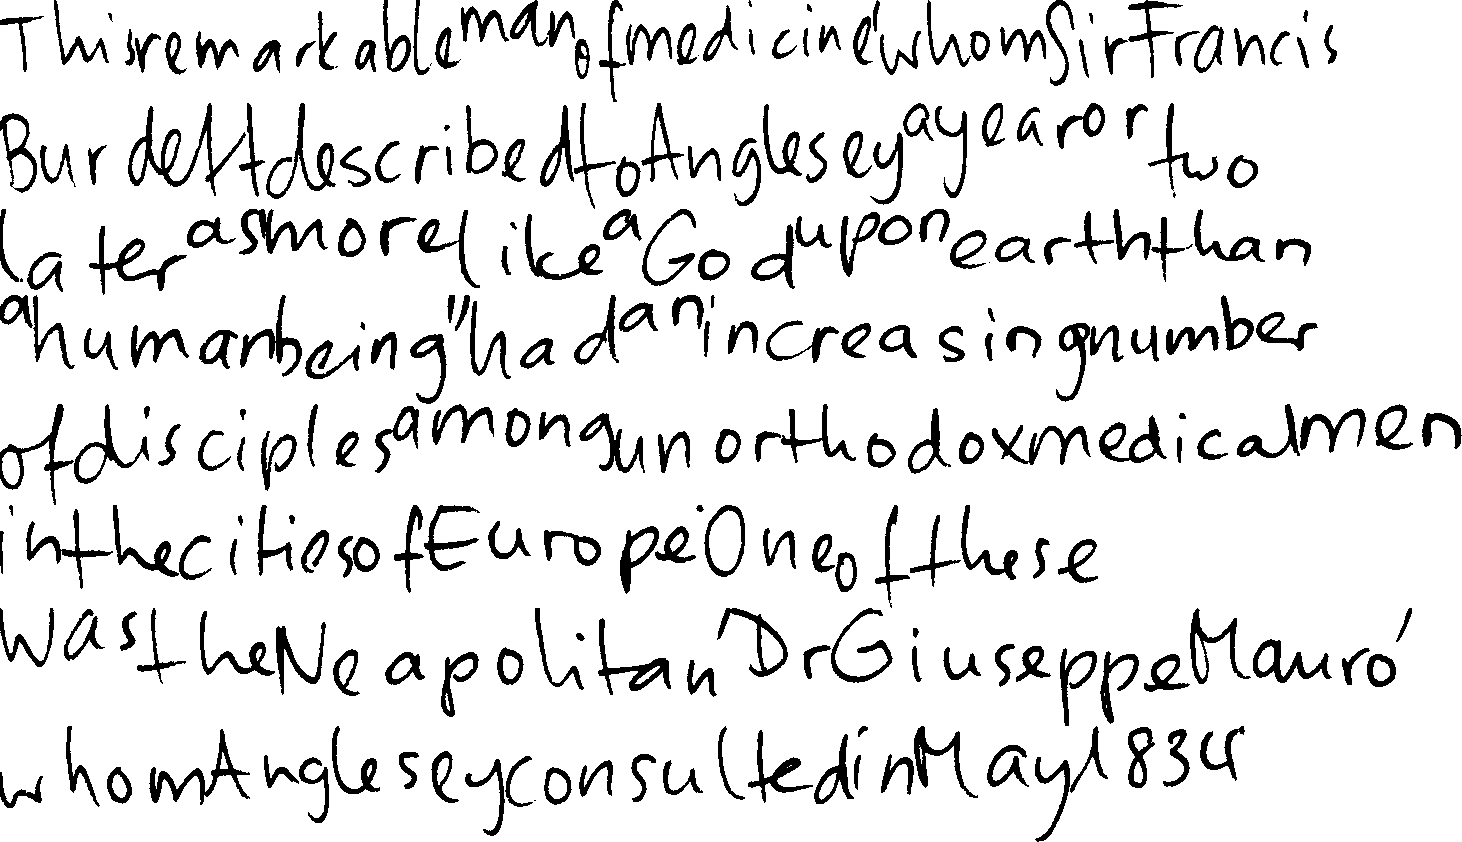 This remarkable man of medicine' whom Sir Francis
Burdett described to Anglesey a year or two
later as more like a God upon earth than
a human being" had an increasing number
of disciples among unorthodox medical men
in the cities of Europe. One of these
was the Neapolitan' Dr Giuseppe Mauro'
whom Anglesey consulted in May 1834